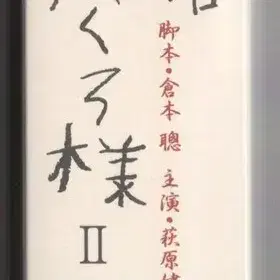 脚本・倉本 聰 主演・萩原
くろ様 II